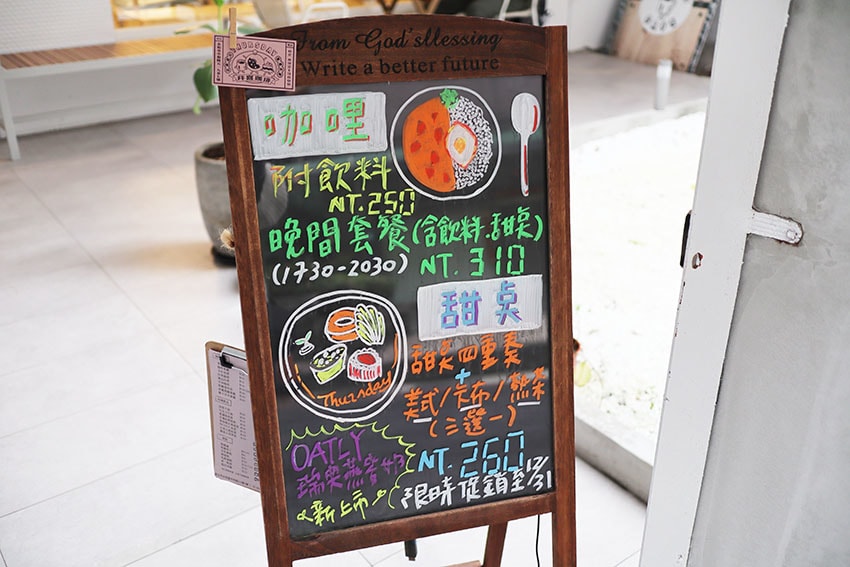 From God'sBlessing
Write a better future
THURSDAY
咖哩
附飲料
NT.250
晚間套餐(含飲料.甜桌)
(1730-2030) NT.310
甜桌
Thursday
甜桌四重奏
+
美式/卡布/熱茶
(三選一)
NT.260
限時促銷至12/31
OATLY
瑞典燕麥奶
新上市